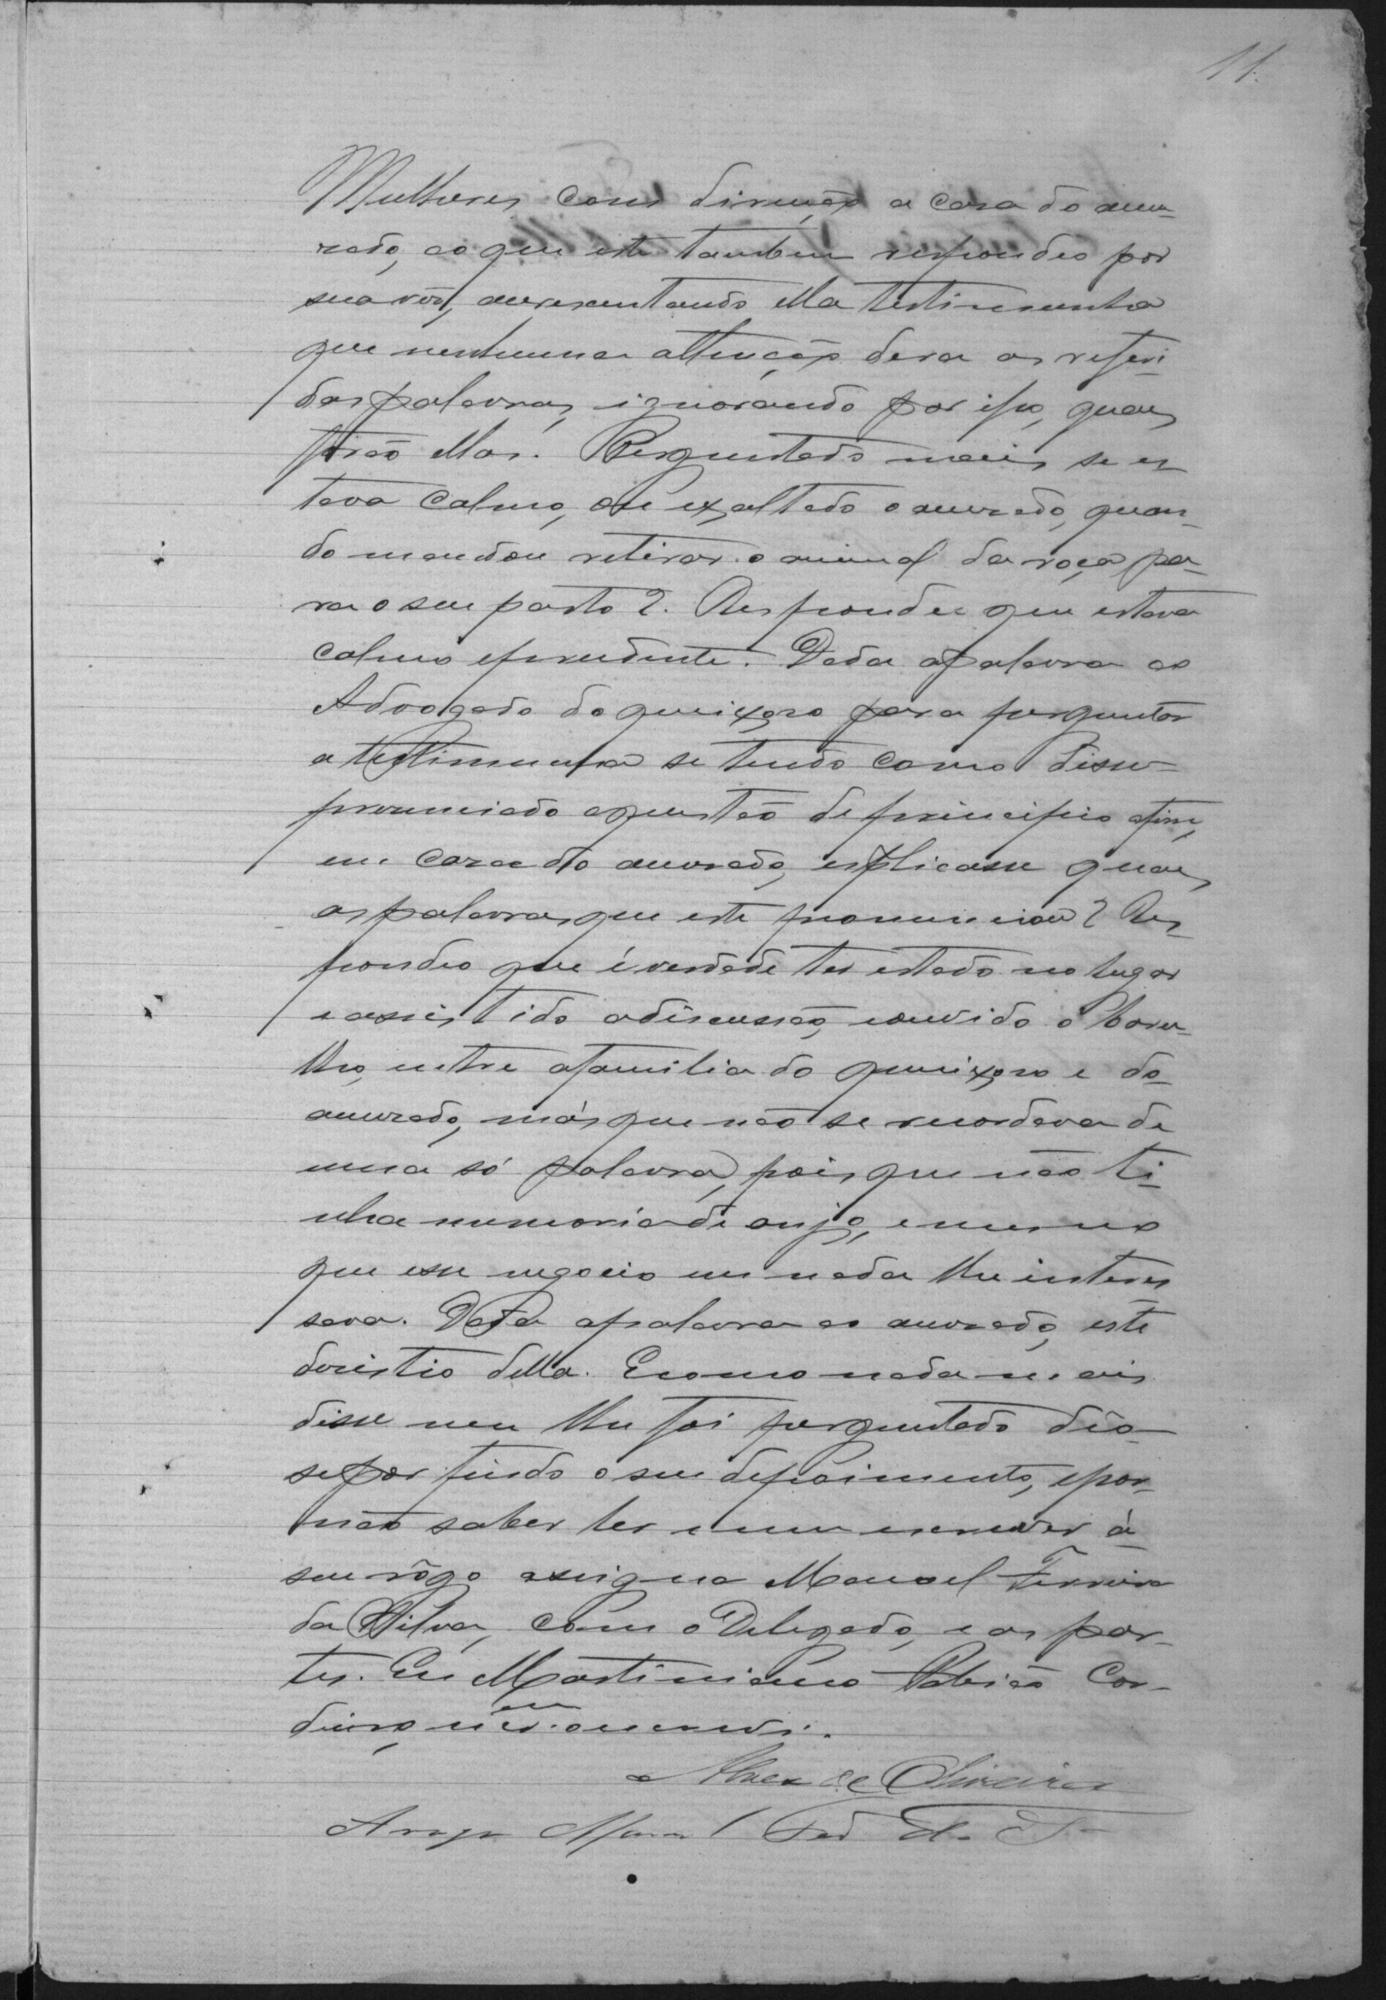 11.
Mulheres com direcção a casa do accu-
zado, ao que este tambem respondeo por
sua vêz, accrescentando ella testimunha
que nenhuma attenção dera as referi-
das palavras, ignorando por isso, quaes
forão ellas. Perguntado mais se es
tava calmo, ou exaltado o accuzado, quan-
do mandou retirar o animal da roça pa-
ra o seu pasto? Respondeu que estava
calmo e prudente. Dada a palavra ao
Advogado do queixoso para perguntar
a testimunha se tendo como disse
prenunciado a questão de principio a fim,
em caza do accuzado, explicasse quaes
as palavras que este pronunciou? Res-
pondeo que é verdade ter estado no lugar
e assistido a discussão, e ouvido o baru-
lho, entre a familia do queixoso e do
accuzado, más que não se recordava de
uma só palavra, pois que não ti-
nha memoria de anjo, e mesmo
que esse negocio em nada lhe interes
sava. Dada a palavra ao accuzado, este
desistio della. E como nada mais
disse nem lhe foi perguntado deo-
se por findo o seu depoimento, e por
não saber ler e nem escrever á
seu rôgo assigna Manoel Ferreira
da Silva, com o Delegado, e as par-
tes. Eu Martiniano Cor-
escrivi.
Alves de Oliveira
Arogo Manoel